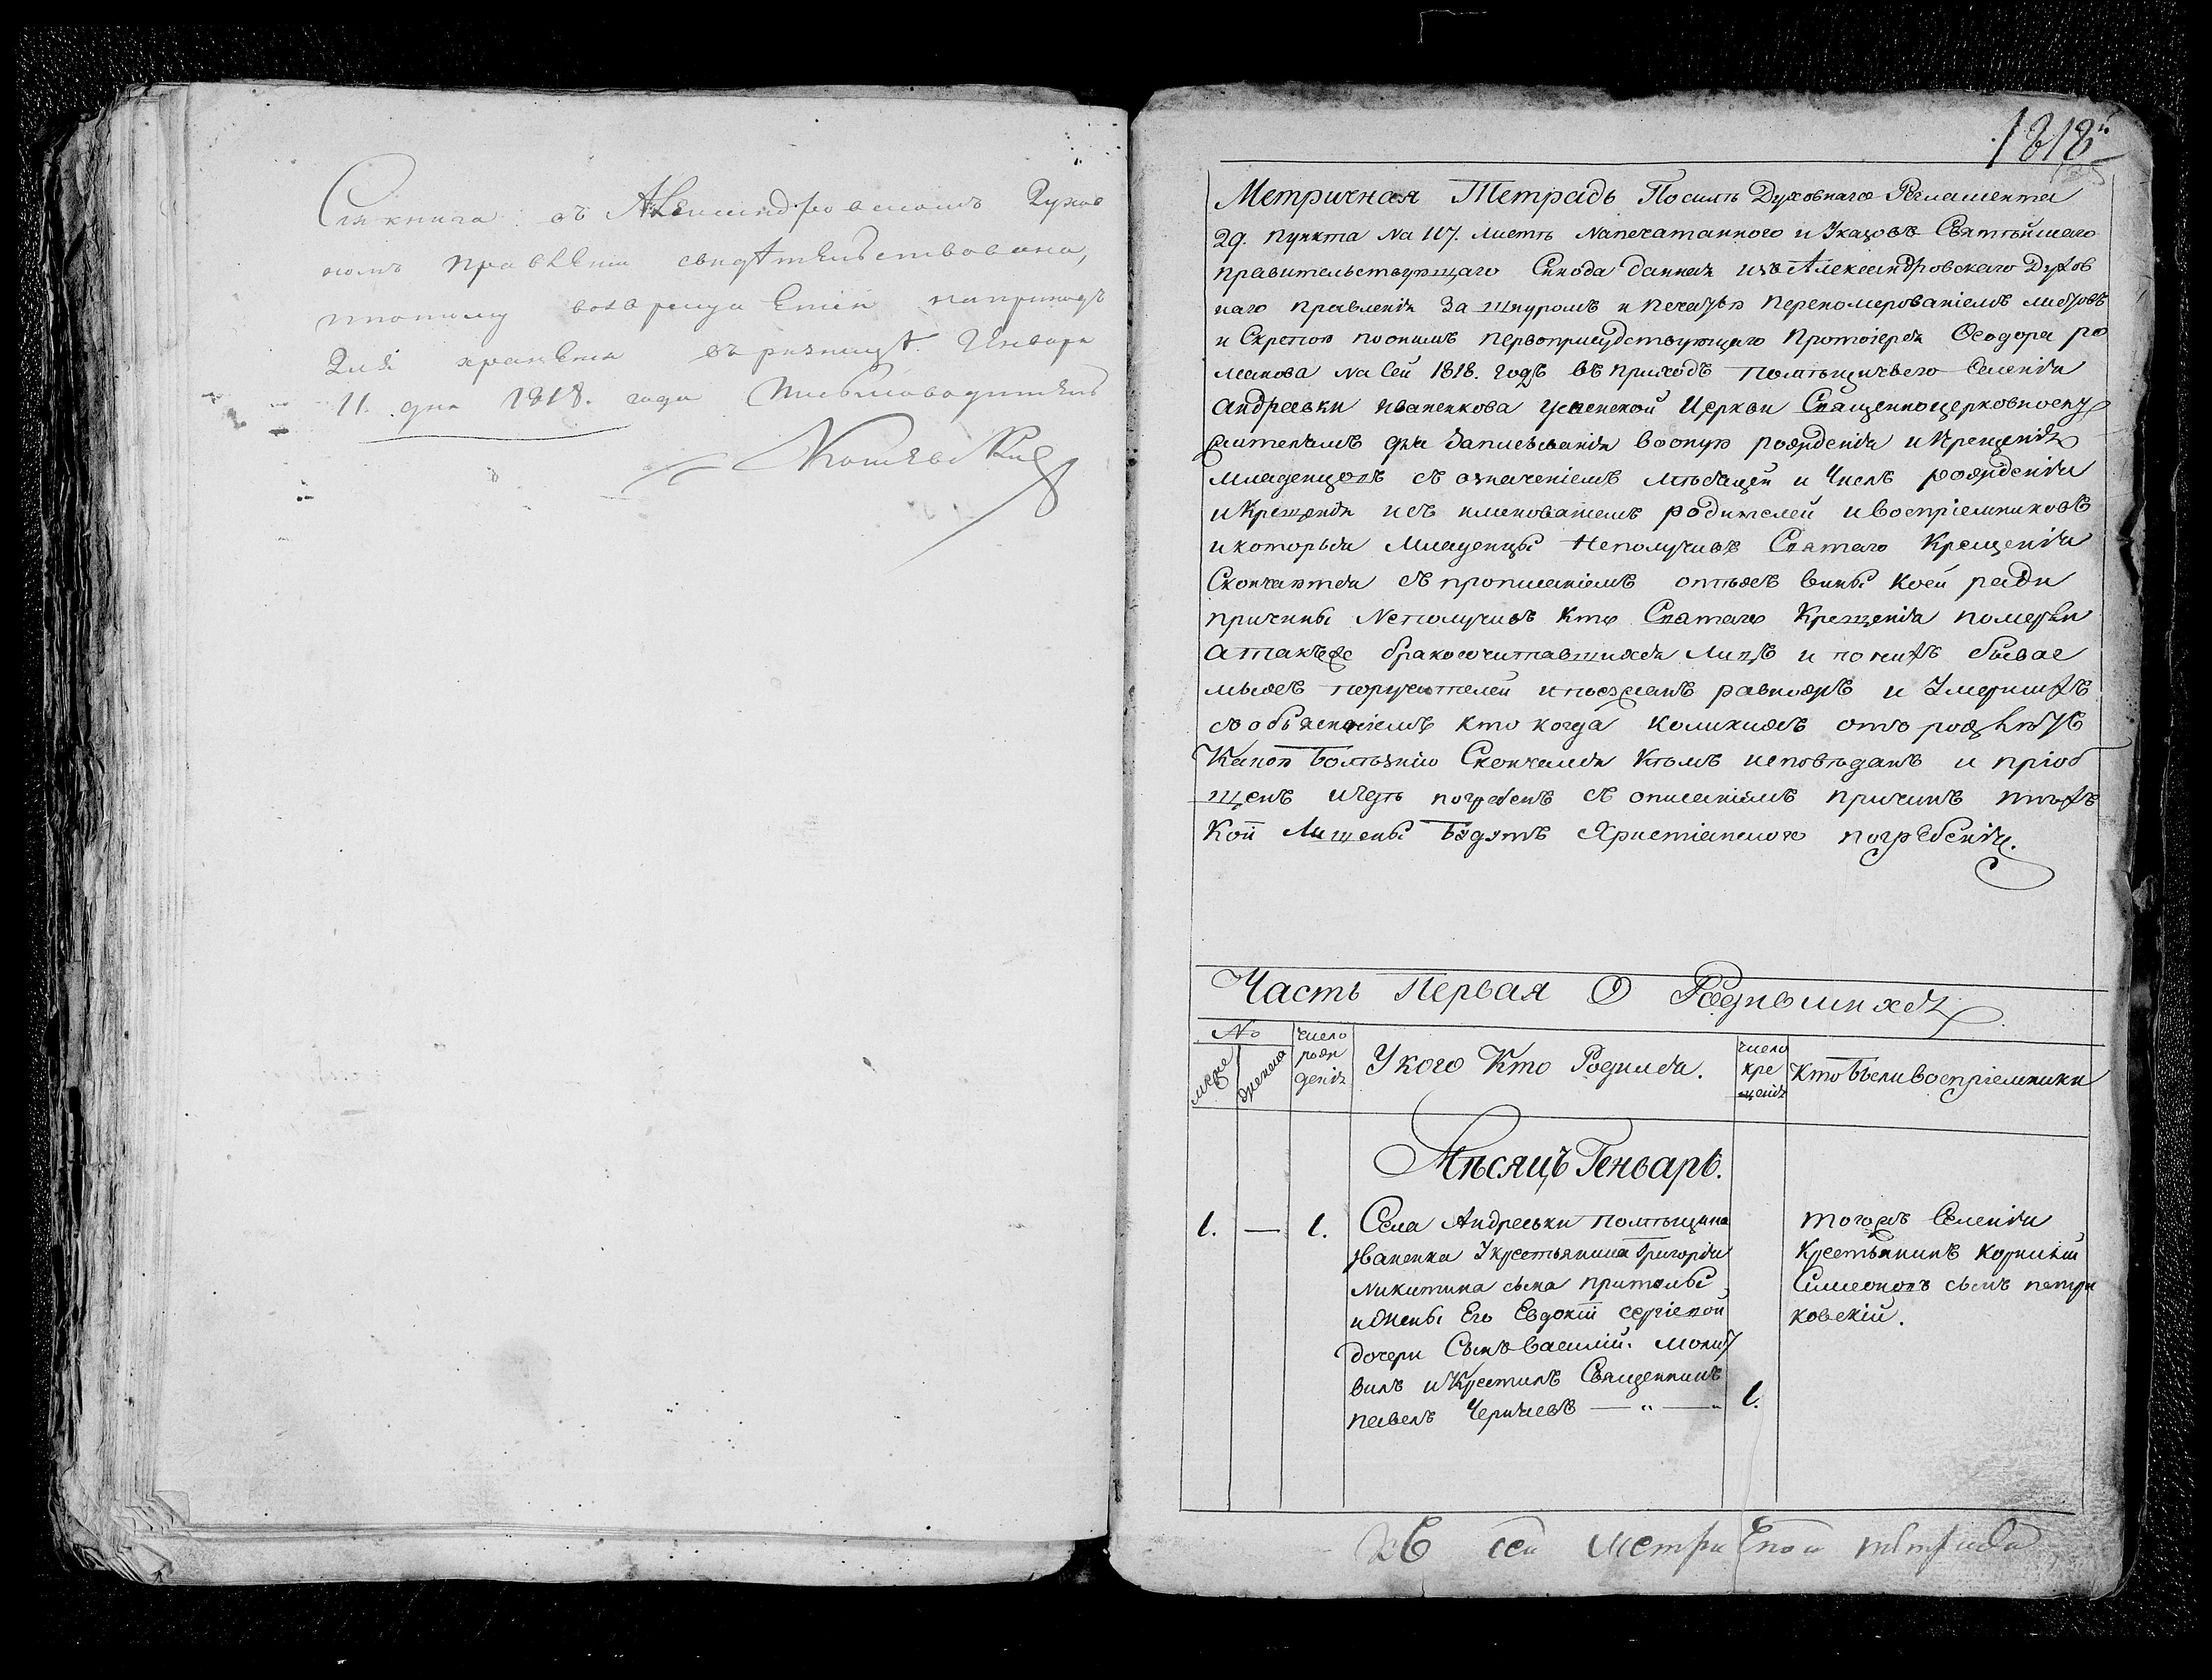 Сія книга въ Александровскомъ Духов
номъ правленіи свидѣтельствована,
и потому возвращается на приходъ
для храненія въ ризницѣ Генваря
11. дня 1818. года Письмоводитель
1818й
Метричная Тетрадь По силѣ Духовнаго Регламента
29. пункта на 117. листѣ напечатанного и Указовъ Святѣйшаго
правительствующаго Синода данная изъ Александровскаго Духов
наго правленія за шнуромъ и печатью перенумерованіемъ листовъ
и Скрепою по онимъ первоприсудствующаго Протоіерея Ѳеодора ро
манова на Сей 1818. годъ въ приходъ помѣщичьего Селенія
андреевки иваненкова успенской Церкви Священноцерковнослу
жителямъ для записыванія въ оную рожденія и Крещенія
младенцовъ съ означеніемъ мѣсацей и Числъ рожденія
и Крещенія и съ именоватемъ родителей и воспріемниковъ
и которыя Младенцы Неполучивъ Святаго Крещенія
Скончаются съ прописаніемъ оттѣхъ вины коей ради
причины Неполучивъ кто Святаго Крещенія померли
атакъже бракосочитавшихся лицъ и по нихъ бывае
мыхъ поручителей и поезжанъ равножъ и Умершихъ
съ объясненіемъ кто когда коликихъ отъ рожд. лѣтъ
Какою болѣзнію Скончался кѣмъ исповѣданъ и пріоб
щенъ и где погребенъ съ описаніемъ причинъ тѣхъ
Кои Лишены будутъ Християнского погребенія.
Часть Первая О Родившихся
№
муже
женска
число
рож
денія
У кого Кто Родился.
число
кре
щенія
Кто были воспріемники
Мѣсяцъ Генварь.
1. — 1. Села Андреевки помѣщика
Иваненка У крестьянина Григорія
Никитина сына притолы
и жены Его Евдокіи сергіевой
дочери Сынъ василій. молит
вилъ и Крестилъ Священникъ
павелъ Черняевъ — „ — 1.
тогожъ Селенія
Крестьянинъ корнилій
Симеоновъ сынъ петри
ковскій.
въ сей метричной тетради